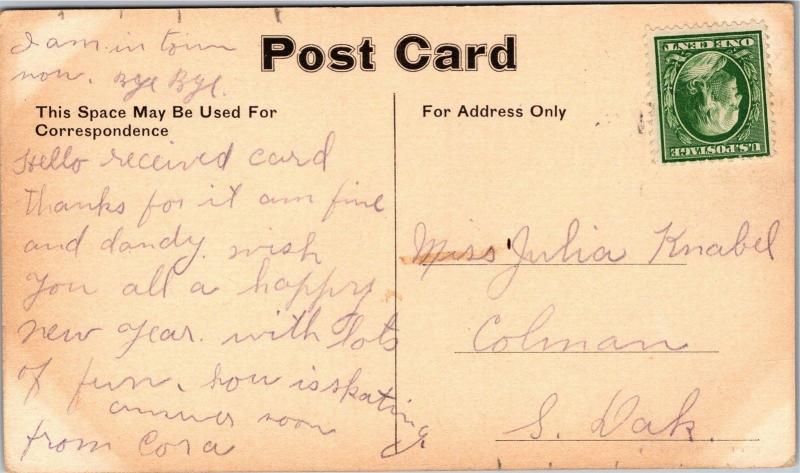 I am in town
now. Bye Bye.
Post Card
This Space May Be Used For
Correspondence
For Address Only
Hello received card
thanks for it am fine
and dandy. wish
you all a happy
new year. with lots
of fun. how is skating
answer soon
from Cora
Miss Julia Knabel
Colman
S. Dak.
U.S. POSTAGE
ONE CENT